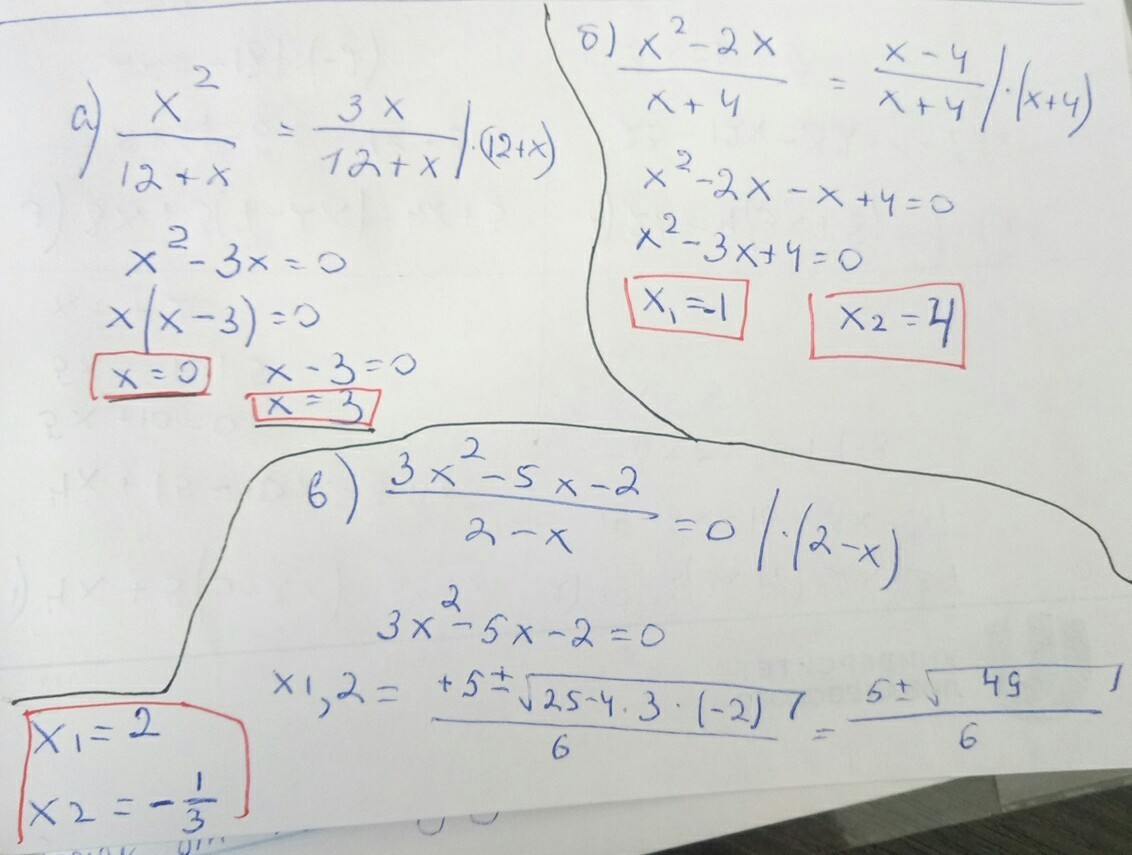 а) x²/(12+x) = 3x/(12+x) /·(12+x)
x²-3x=0
x(x-3)=0
x=0 x-3=0
x=3
б) (x²-2x)/(x+4) = (x-4)/(x+4) /·(x+4)
x²-2x-x+4=0
x²-3x+4=0
x₁=-1 x₂=4
в) (3x²-5x-2)/(2-x) =0 /·(2-x)
3x²-5x-2=0
x1,2= (+5±√(25-4·3·(-2)))/6 = (5±√49)/6
x₁=2
x2=-1/3